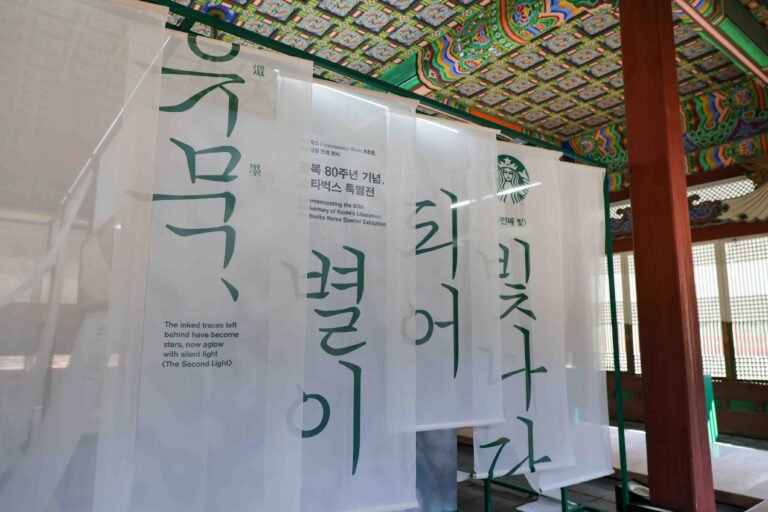 유묵,
遺
墨
The inked traces left
behind have become
stars, now aglow
with silent light
〈The Second Light〉
벅스 Community Store
연계 전시
복 80주년 기념,
타벅스 특별전
Commemorating the 80th
Anniversary of Korea's Liberation:
Starbucks Korea Special Exhibition
별이
되어
번째 빛〉
빛나다